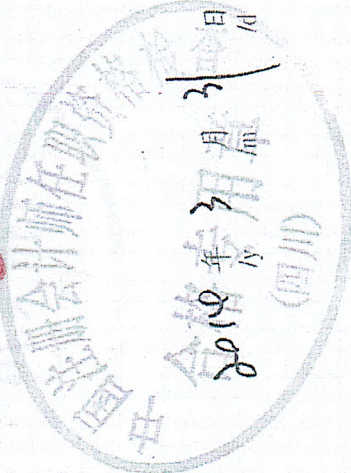 中国注册会计师任职资格检查
合格专用章
(四川)
2010年3月31日
/y /m /d